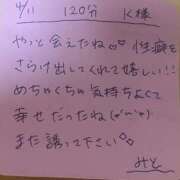 4/11 120分 K様
やっと会えたね♡ 性癖を
さらけ出してくれて嬉しい!!
めちゃくちゃ気持ちよくて
幸せだったね(*´`*)
また誘って下さい♡
みと